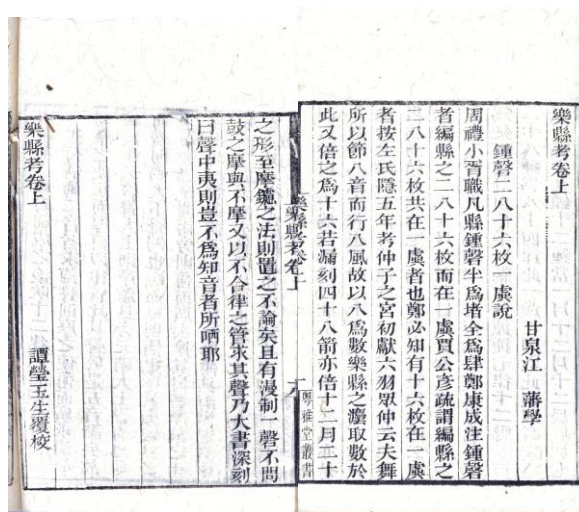 樂縣考卷上
甘泉江藩學
鍾磬二八十六枚一虡說
周禮小胥職凡縣鍾磬半爲堵全爲肆鄭康成注鍾磬
者編縣之二八十六枚而在一虡賈公彥疏謂編縣之
二八十六枚共在一虡者也鄭必知有十六枚在一虡
者按左氏隱五年考仲子之宮初獻六羽眾仲云夫舞
所以節八音而行八風故以八爲數樂縣之灋取數於
此又倍之爲十六若漏刻四十八箭亦倍十二月二十
樂縣考卷上
粵雅堂叢書
之形至摩鑢之法則置之不論矣且有漫制一磬不問
鼓之摩與不摩又以不合律之管求其聲乃大書深刻
曰聲中夷則豈不爲知音者所哂耶
樂縣考卷上
譚瑩玉生覆校